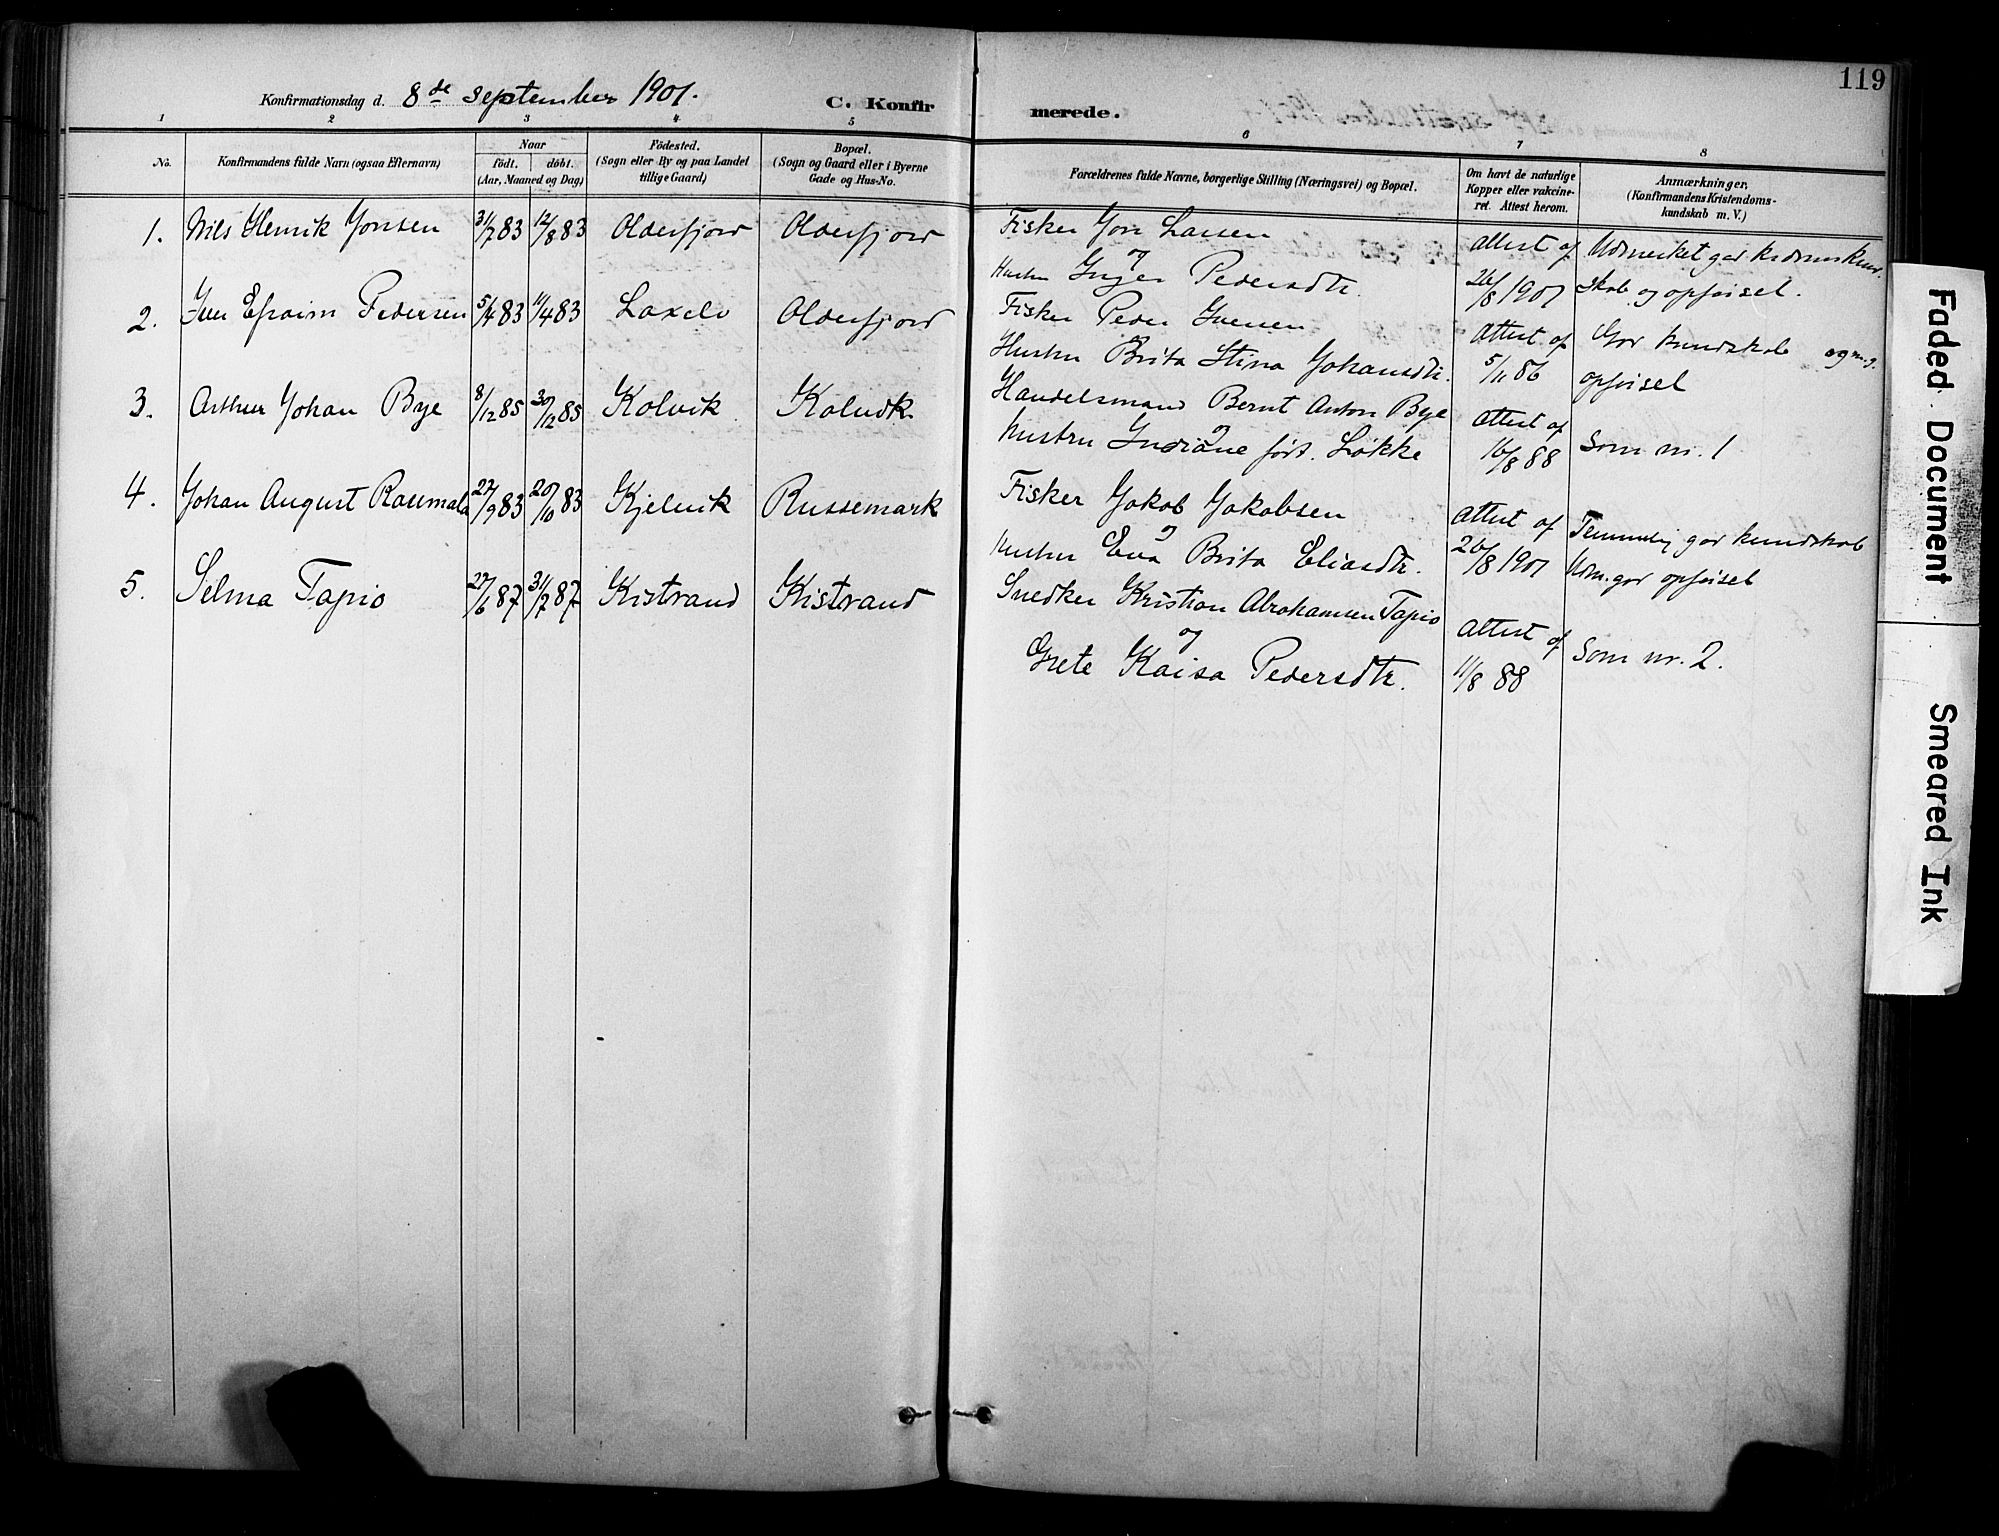 119
Konfirmationsdag d. 8de september 1901. C. Konfirmerede.
1 2 3 4 5 6 7 8
No. Konfirmandens fulde Navn (ogsaa Efternavn)
Naar
født. døbt.
(Aar, Maaned og Dag)
Fødested.
(Sogn eller By og paa Landet
tillige Gaard)
Bopæl.
(Sogn og Gaard eller i Byerne
Gade og Hus-No.
Forældrenes fulde Navne, borgerlige Stilling (Næringsvei) og Bopæl.
Om havt de naturlige
Kopper eller vakcine-
ret. Attest herom.
Anmærkninger,
(Konfirmandens Kristendoms-
kundskab m. V.)
1. Nils Henrik Jonsen 31/7 83 12/8 83 Olderfjord Olderfjord Fisker Jon Larsen
og
Hustru Inger Pedersdtr.
attest af
26/8 1901
Udmerket god kr.domskund-
skab og opførsel.
2. Iver Efraim Pedersen 5/4 83 11/4 83 Laxelv Olderfjord Fisker Peder Iversen
og
Hustru Brita Stina Johansdtr.
attest af
5/11 86
God kundskab og m.g.
opførsel
3. Arthur Johan Bye 8/12 85 30/12 85 Kolvik Kolvik Handelsmand Bernt Anton Bye
og
hustru Indiane født Løkke
attest af
16/8 88
Som nr. 1
4. Johan August Rousmala 27/9 83 20/10 83 Kjelvik Russemark Fisker Jakob Jakobsen
og
hustru Eva Brita Eliasdtr.
attest af
26/8 1901
Temmelig god kundskab
Udm. god opførsel
5. Selma Tapio 27/6 87 31/7 87 Kistrand Kistrand Snedker Kristian Abrahamsen Tapio
og
Grete Kaisa Pedersdtr.
attest af
11/8 88
Som nr. 2.
Faded Document
Smeared Ink